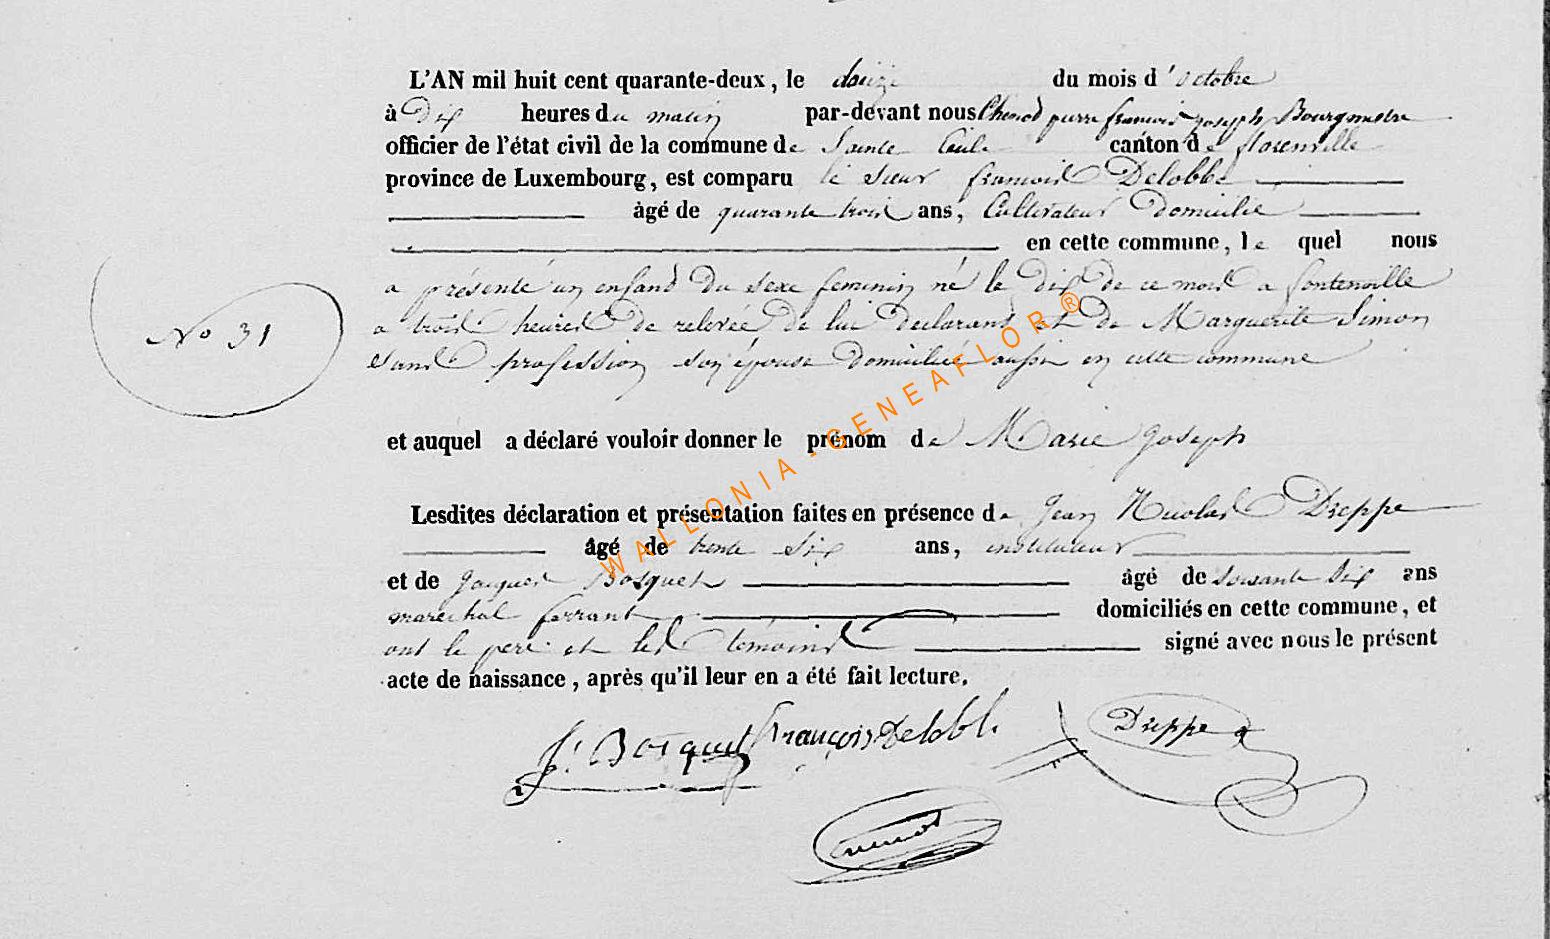 L'AN mil huit cent quarante-deux, le douze du mois d'octobre
à Dix heures du matin par-devant nous Chenot pierre françois joseph Bourgmestre
officier de l'état civil de la commune de Sainte Cécile canton de florenville
province de Luxembourg, est comparu le sieur françois Delobbe
âgé de quarante trois ans, Cultivateur Domicilié
en cette commune, le quel nous
a présenté un enfand du sexe feminin né le dix de ce mois a fontenoille
a trois heures de relevée de lui declarant et de Marguerite Simon
sans profession son épouse domiciliée aussi en cette commune
No 31
et auquel a déclaré vouloir donner le prénom de Marie joseph
Lesdites déclaration et présentation faites en présence de Jean Nicolas Dreppe
âgé de trente six ans, instituteur
et de Jacques Bosquet âgé de soisante six ans
marechal ferrant domiciliés en cette commune, et
ont le pere et les témoins signé avec nous le présent
acte de naissance, après qu'il leur en a été fait lecture.
J. Bosquet François Delobbe Dreppe
Chenot
WALLONIA - GENEAFLOR ®